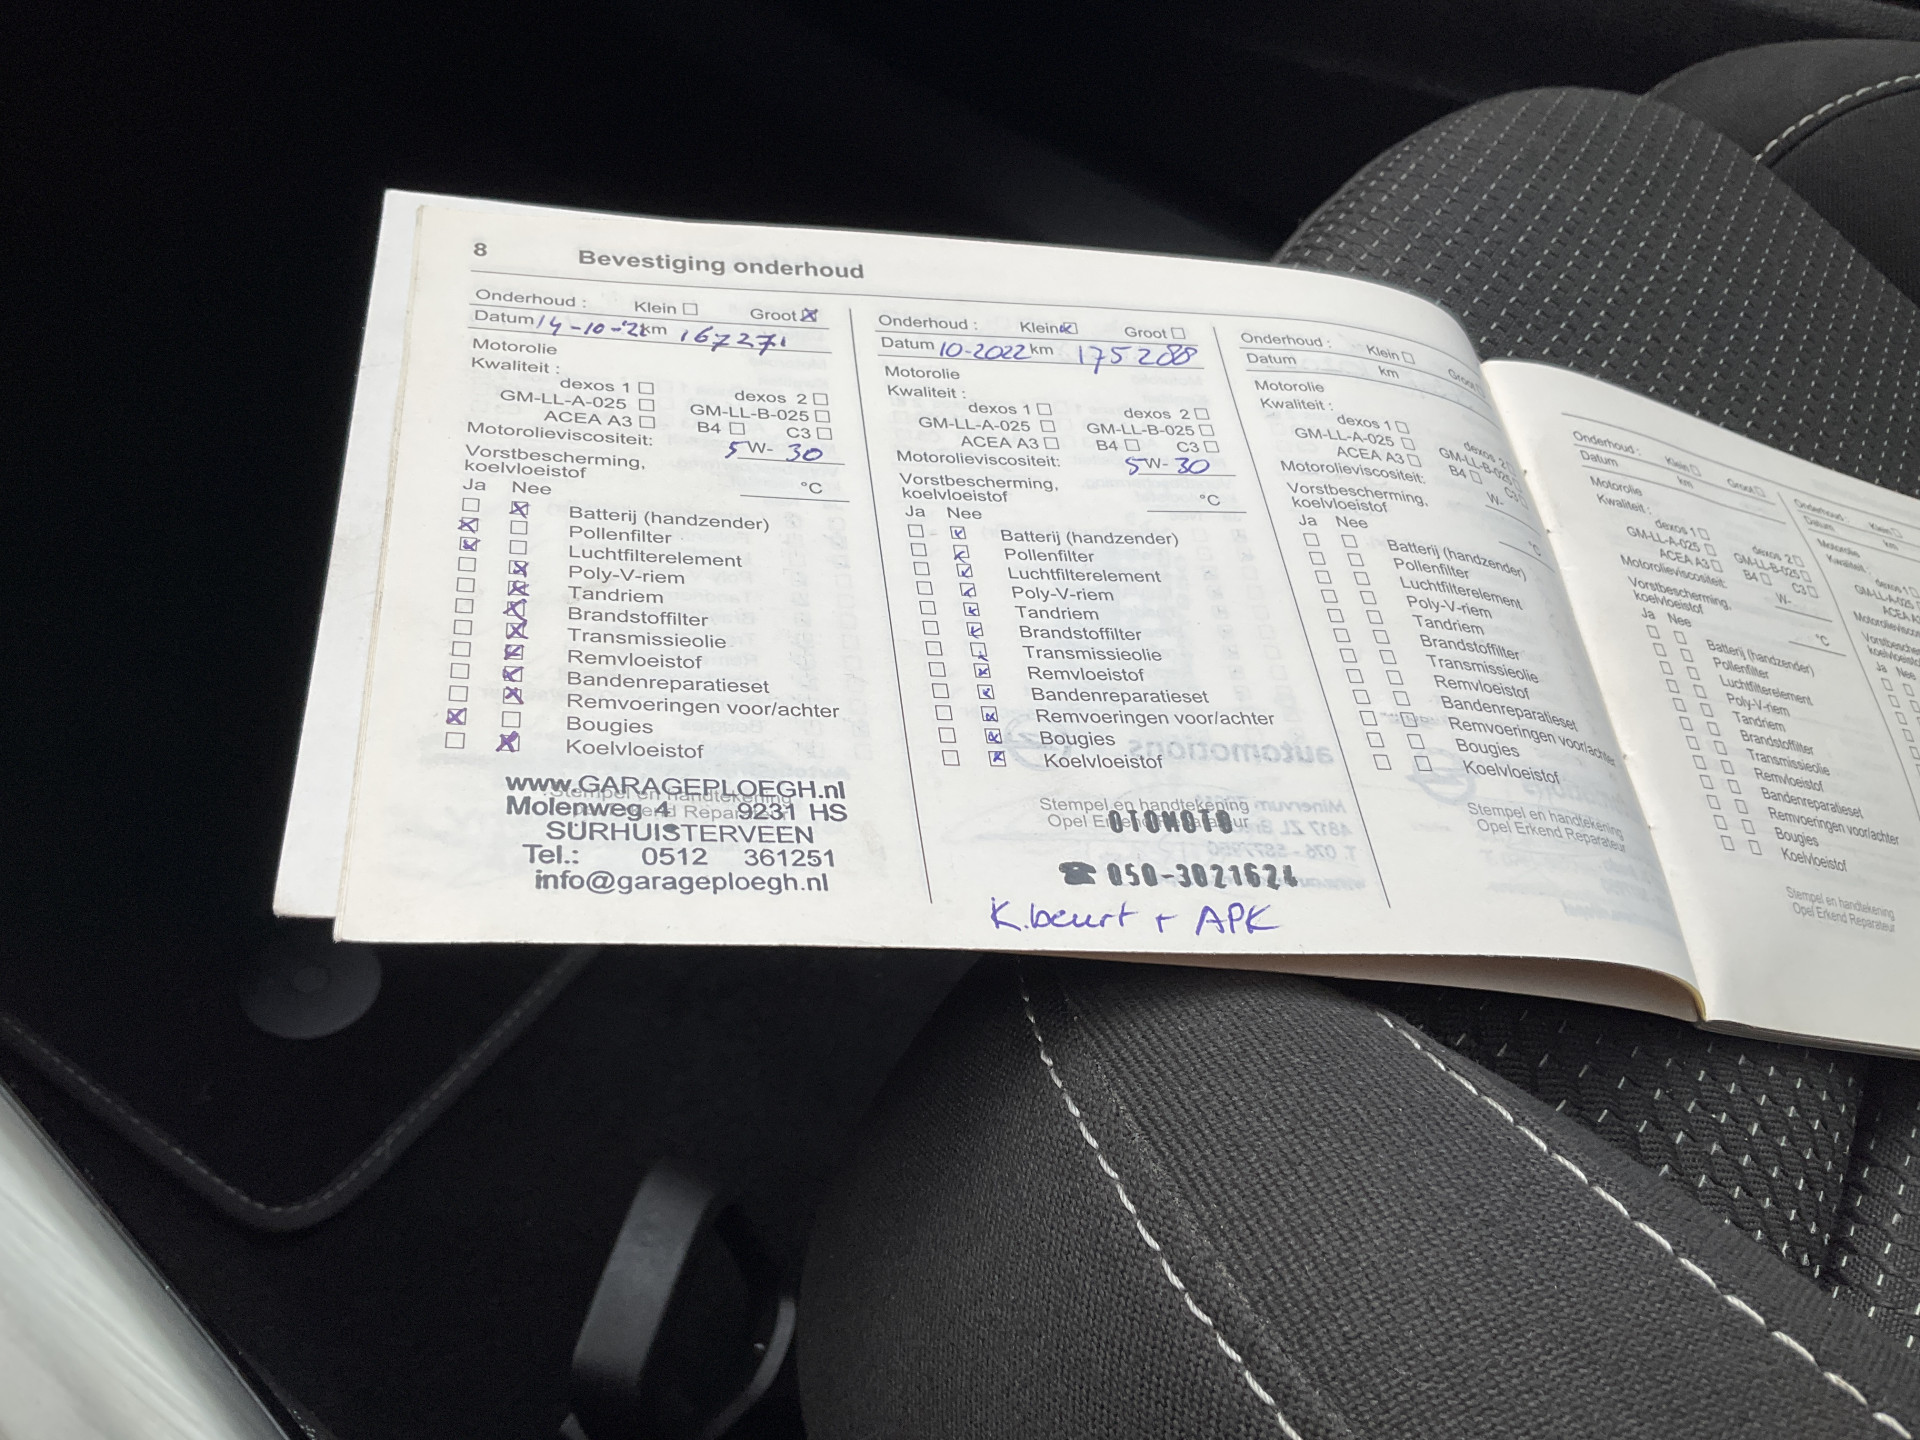 8 Bevestiging onderhoud
Onderhoud : Klein Groot
Datum 14-10-'21 km 167271
Motorolie
Kwaliteit :
dexos 1 dexos 2
GM-LL-A-025 GM-LL-B-025
ACEA A3 B4 C3
Motorolieviscositeit: 5 W- 30
Vorstbescherming,
koelvloeistof °C
Ja Nee
Batterij (handzender)
Pollenfilter
Luchtfilterelement
Poly-V-riem
Tandriem
Brandstoffilter
Transmissieolie
Remvloeistof
Bandenreparatieset
Remvoeringen voor/achter
Bougies
Koelvloeistof
Stempel en handtekening
www.GARAGEPLOEGH.nl
Molenweg 4 9231 HS
SURHUISTERVEEN
Tel.: 0512 361251
info@garageploegh.nl
Onderhoud : Klein Groot
Datum 10-2022 km 175288
Motorolie
Kwaliteit :
dexos 1 dexos 2
GM-LL-A-025 GM-LL-B-025
ACEA A3 B4 C3
Motorolieviscositeit: 5 W- 30
Vorstbescherming,
koelvloeistof °C
Ja Nee
Batterij (handzender)
Pollenfilter
Luchtfilterelement
Poly-V-riem
Tandriem
Brandstoffilter
Transmissieolie
Remvloeistof
Bandenreparatieset
Remvoeringen voor/achter
Bougies
Koelvloeistof
Stempel en handtekening
OTOMOTO
☎ 050-3021624
K.beurt + APK
Onderhoud : Klein Groot
Datum km
Motorolie
Kwaliteit :
dexos 1 dexos 2
GM-LL-A-025 GM-LL-B-025
ACEA A3 B4 C3
Motorolieviscositeit: W-
Vorstbescherming,
koelvloeistof °C
Ja Nee
Batterij (handzender)
Pollenfilter
Luchtfilterelement
Poly-V-riem
Tandriem
Brandstoffilter
Transmissieolie
Remvloeistof
Bandenreparatieset
Remvoeringen voor/achter
Bougies
Koelvloeistof
Stempel en handtekening
Opel Erkend Reparateur
Onderhoud : Klein Groot
Datum km
Motorolie
Kwaliteit :
dexos 1 dexos 2
GM-LL-A-025 GM-LL-B-025
ACEA A3 B4 C3
Motorolieviscositeit: W-
Vorstbescherming,
koelvloeistof °C
Ja Nee
Batterij (handzender)
Pollenfilter
Luchtfilterelement
Poly-V-riem
Tandriem
Brandstoffilter
Transmissieolie
Remvloeistof
Bandenreparatieset
Remvoeringen voor/achter
Bougies
Koelvloeistof
Stempel en handtekening
Opel Erkend Reparateur
Onderhoud : Klein
Datum km
Motorolie
Kwaliteit :
Ja Nee